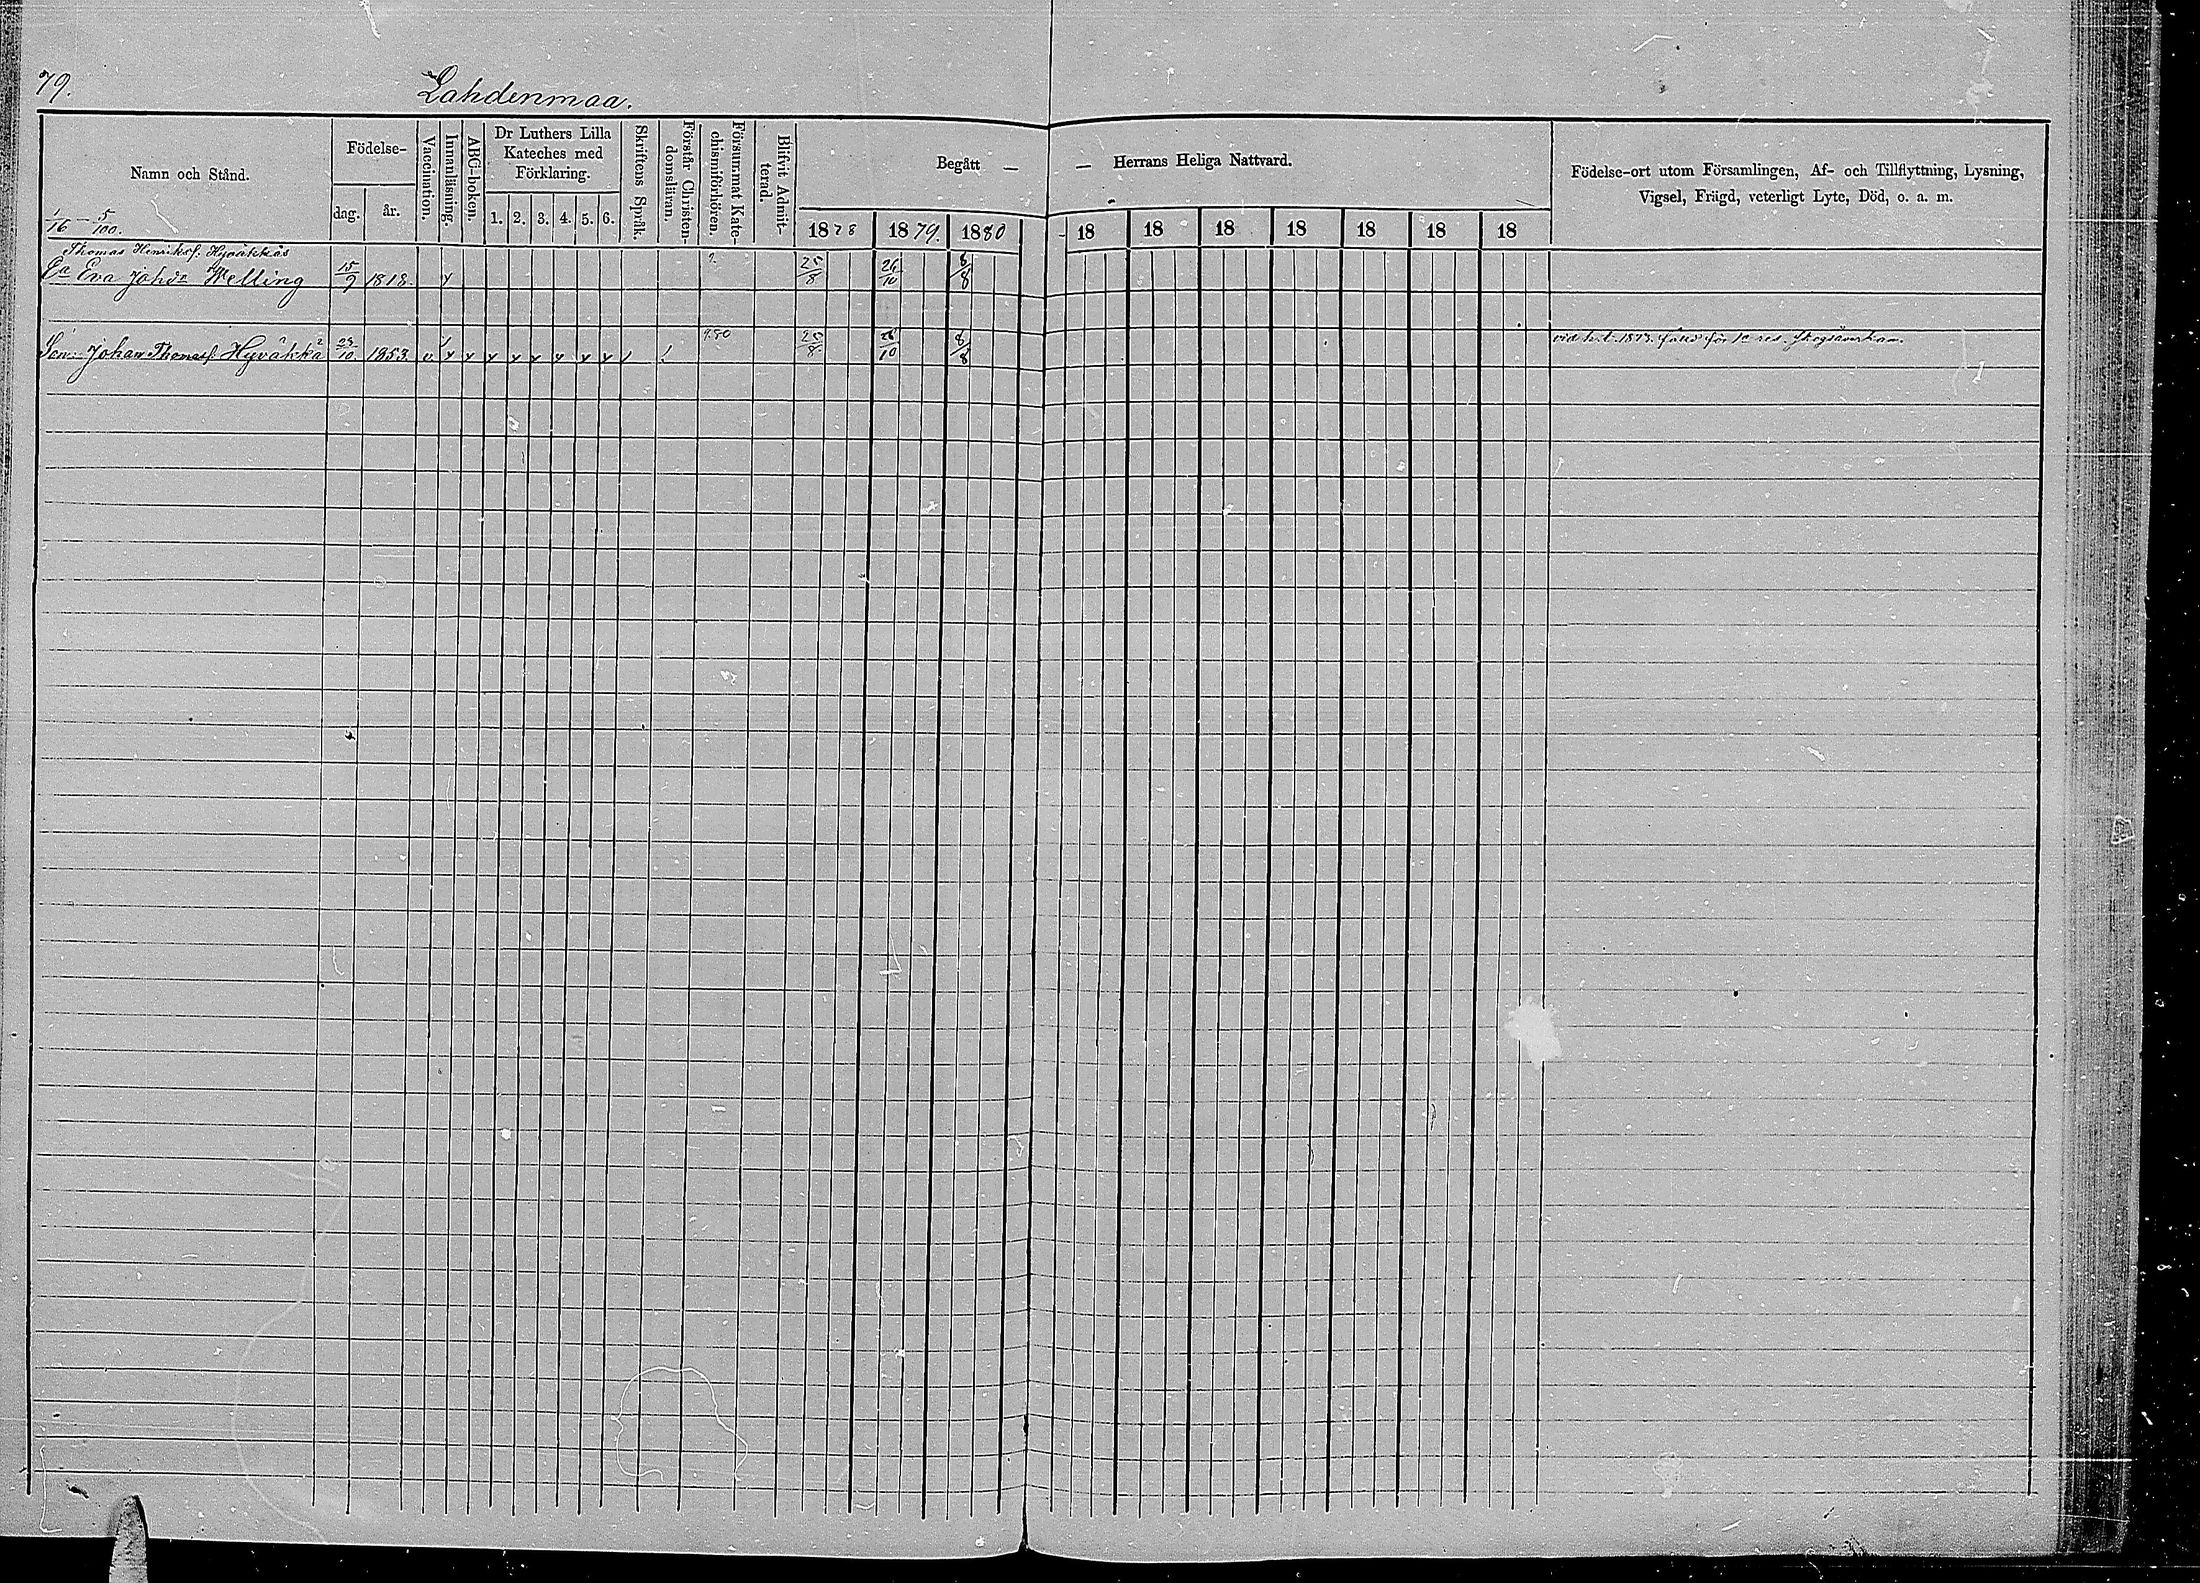 79.
Lahdenmaa.
Namn och Stånd.
Födelse-
dag.
år.
Vaccination.
Innanläsning.
ABC-boken.
Dr Luthers Lilla
Kateches med
Förklaring.
1. 2. 3. 4. 5. 6.
Skriftens Språk.
Förstår Christen-
domsläran.
Försummat Kate-
chismiförhören.
Blifvit Admit-
terad.
Begått —
— Herrans Heliga Nattvard.
1878 1879. 1880 18 18 18 18 18 18 18
Födelse-ort utom Församlingen, Af- och Tillflyttning, Lysning,
Vigsel, Frägd, veterligt Lyte, Död, o. a. m.
1/16 — 5/100.
Thomas Henrikss. Hyväkkäs
Ea Eva Johsdr Welling 15/9 1818. 25/8 26/10 8/8
Son: Johan Thomass. Hyväkkä 1853 v 9.80 25/8 26/10 8/8
vid h.t. 1873. för